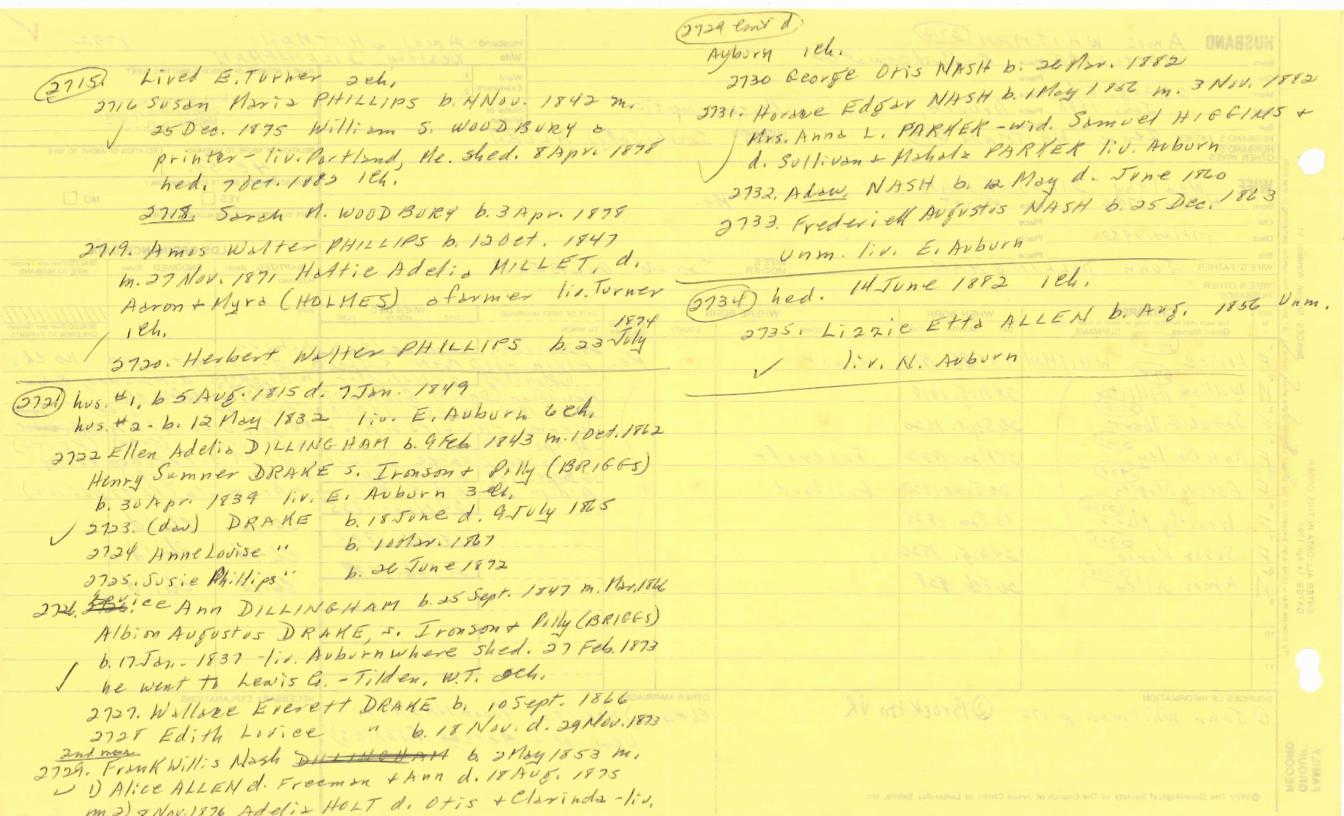 2715. Lived E. Turner 2ch.
2716 Susan Maria PHILLIPS b. 4 Nov. 1842 m.
25 Dec. 1875 William S. WOODBURY a
printer - liv. Portland, Me. shed. 8 Apr. 1878
hed. 7 Oct. 1882 1ch.
2718. Sarah M. WOODBURY b. 3 Apr. 1878
2719. Amos Walter PHILLIPS b. 12 Oct. 1847
m. 27 Nov. 1871 Hattie Adelia MILLET, d.
Aaron + Myra (HOLMES) a farmer liv. Turner
1ch.
2720. Herbert Walter PHILLIPS b. 23 July 1874
2721 hus. #1, b 5 Aug. 1815 d. 7 Jan. 1849
hus. #2 - b. 12 May 1832 liv. E. Auburn 6ch.
2722 Ellen Adelia DILLINGHAM b. 9 Feb 1843 m. 1 Oct. 1862
Henry Sumner DRAKE s. Ironson + Polly (BRIGGS)
b. 30 Apr. 1839 liv. E. Auburn 3ch.
2723. (dau) DRAKE b. 18 June d. 9 July 1865
2724 Anne Louise " b. 10 Mar. 1867
2725. Susie Phillips " b. 26 June 1872
2726. Ann DILLINGHAM b. 25 Sept. 1847 m. Mar. 1866
Albion Augustus DRAKE, s. Ironson + Polly (BRIGGS)
b. 17 Jan - 1837 - liv. Auburn where shed. 27 Feb. 1873
he went to Lewis G. - Tilden, W.T. 2ch.
2727. Wallace Everett DRAKE b. 10 Sept. 1866
2728 Edith Lovice " b. 18 Nov. d. 29 Nov. 1873
2nd mar.
2729. Frank Willis Nash DILLINGHAM b. 2 May 1853 m.
1) Alice ALLEN d. Freeman + Ann d. 18 Aug. 1875
m 2) 8 Nov. 1876 Adelia HOLT d. Otis + Clarinda - liv.
2729 cont'd.
Auburn 1ch.
2730 George Otis NASH b. 26 Mar. 1882
2731. Horace Edgar NASH b. 1 May 1856 m. 3 Nov. 1882
Mrs. Anna L. PARKER - wid. Samuel HIGGINS +
d. Sullivan + Mahala PARKER liv. Auburn
2732. Adaw. NASH b. 12 May d. June 1860
2733. Frederick Augustus NASH b. 25 Dec. 1863
Unm. liv. E. Auburn
2734 hed. 14 June 1882 1ch.
2735. Lizzie Etta ALLEN b. Aug. 1856 Unm.
liv. N. Auburn